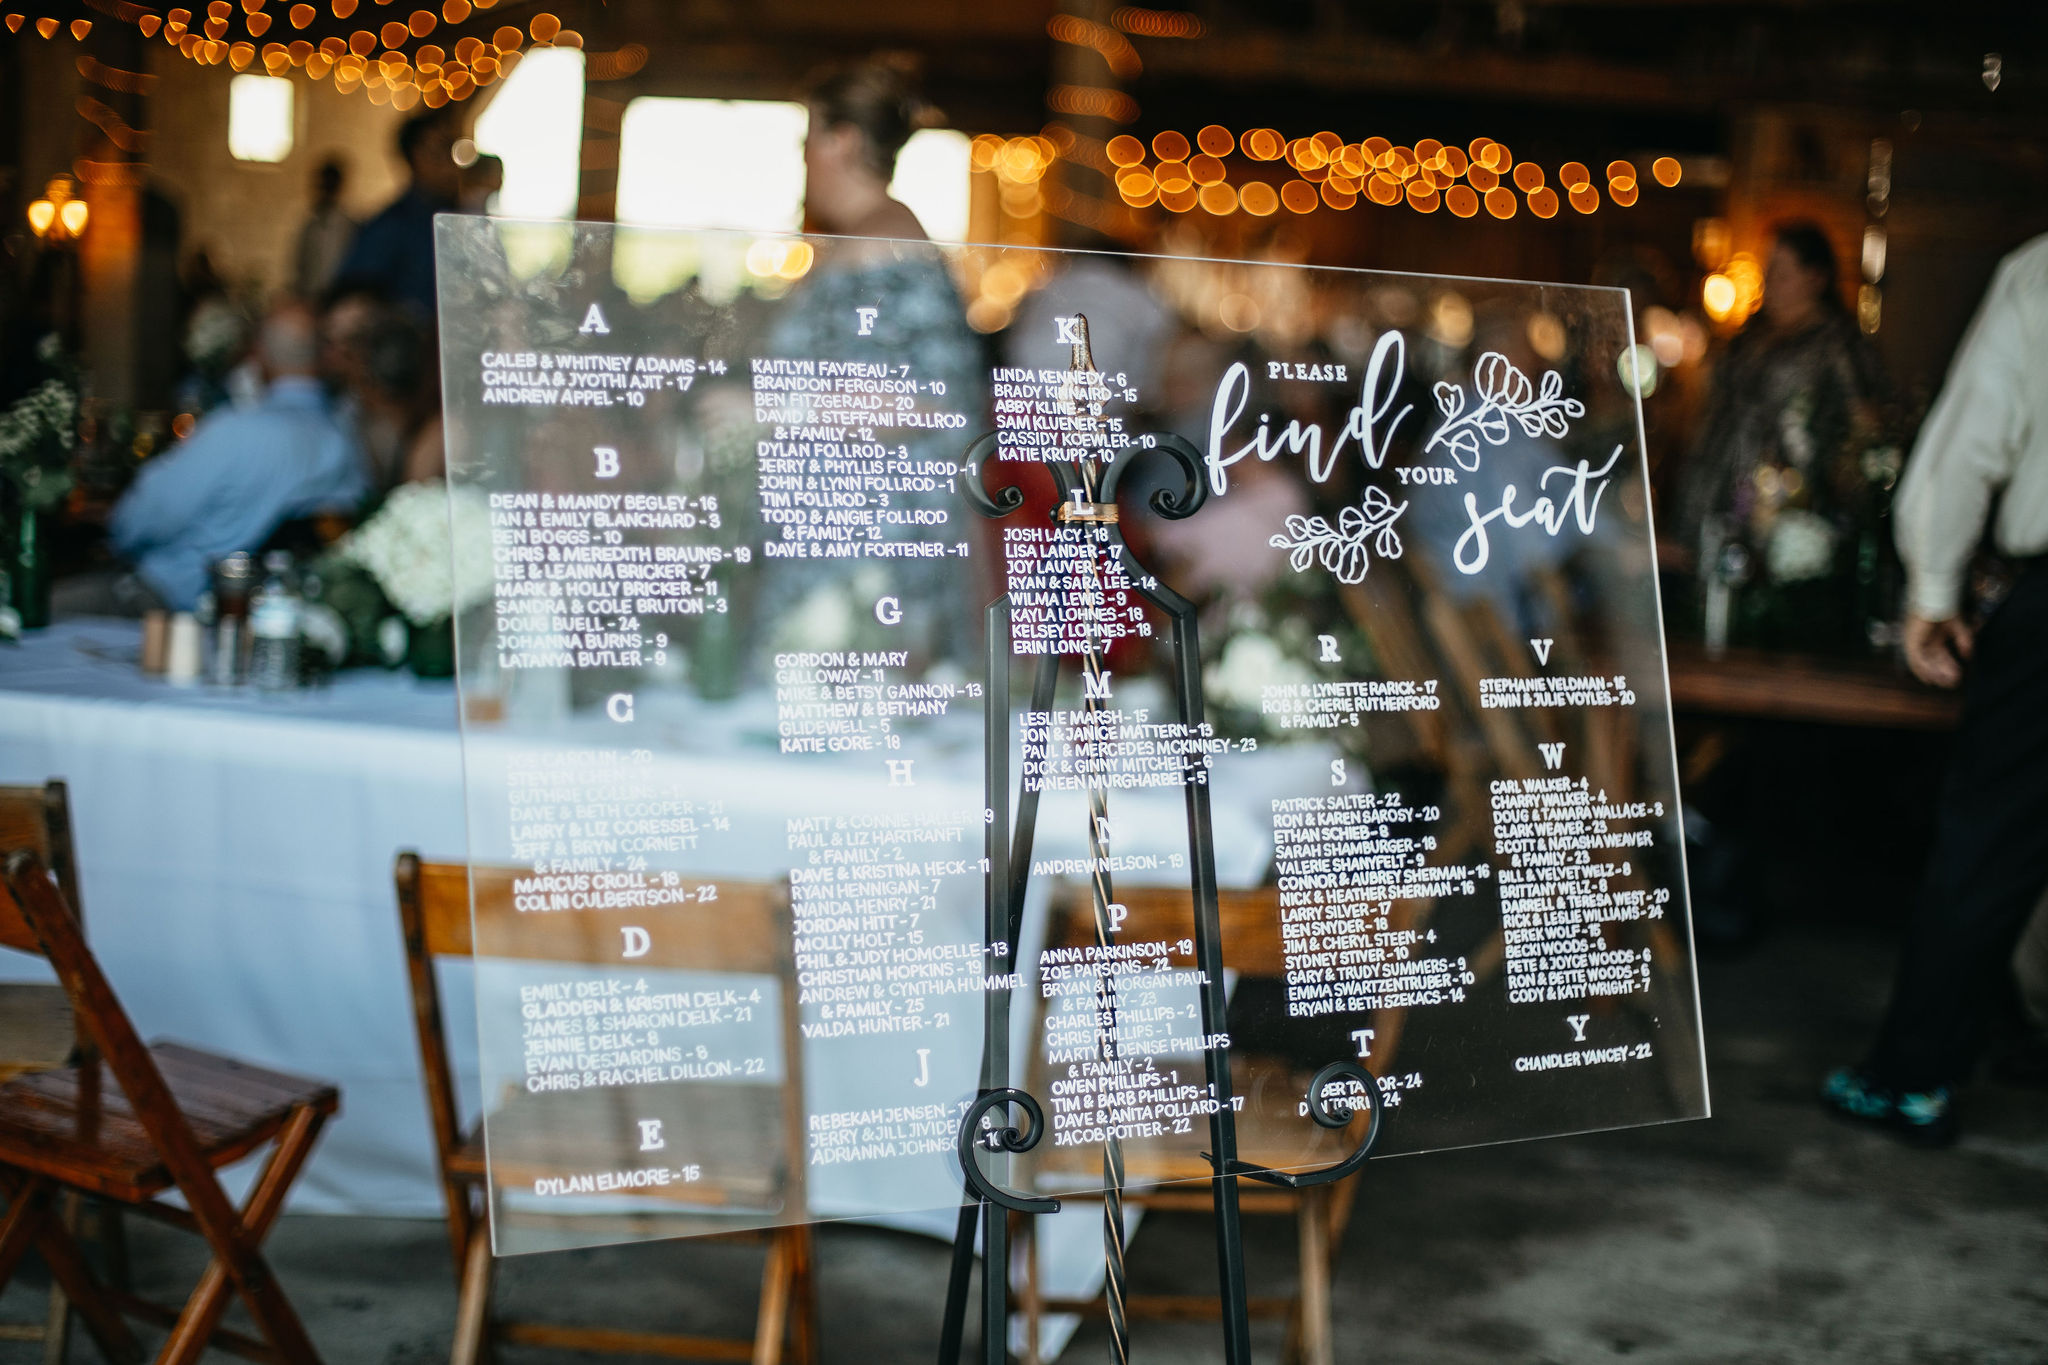 A
CALEB & WHITNEY ADAMS - 14
CHALLA & JYOTHI AJIT - 17
ANDREW APPEL - 10
B
DEAN & MANDY BEGLEY - 16
IAN & EMILY BLANCHARD - 3
BEN BOGGS - 10
CHRIS & MEREDITH BRAUNS - 19
LEE & LEANNA BRICKER - 7
MARK & HOLLY BRICKER - 11
SANDRA & COLE BRUTON - 3
DOUG BUELL - 24
JOHANNA BURNS - 9
LATANYA BUTLER - 9
C
JOE CAROLIN - 20
STEVEN CHEN -
GUTHRIE COLLINS -
DAVE & BETH COOPER - 21
LARRY & LIZ CORESSEL - 14
JEFF & BRYN CORNETT
& FAMILY - 24
MARCUS CROLL - 18
COLIN CULBERTSON - 22
D
EMILY DELK - 4
GLADDEN & KRISTIN DELK - 4
JAMES & SHARON DELK - 21
JENNIE DELK - 8
EVAN DESJARDINS - 8
CHRIS & RACHEL DILLON - 22
E
DYLAN ELMORE - 15
F
KAITLYN FAVREAU - 7
BRANDON FERGUSON - 10
BEN FITZGERALD - 20
DAVID & STEFFANI FOLLROD
& FAMILY - 12
DYLAN FOLLROD - 3
JERRY & PHYLLIS FOLLROD - 1
JOHN & LYNN FOLLROD - 1
TIM FOLLROD - 3
TODD & ANGIE FOLLROD
& FAMILY - 12
DAVE & AMY FORTENER - 11
G
GORDON & MARY
GALLOWAY - 11
MIKE & BETSY GANNON - 13
MATTHEW & BETHANY
GLIDEWELL - 5
KATIE GORE - 18
H
MATT & CONNIE HALLER - 9
PAUL & LIZ HARTRANFT
& FAMILY - 2
DAVE & KRISTINA HECK - 11
RYAN HENNIGAN - 7
WANDA HENRY - 21
JORDAN HITT - 7
MOLLY HOLT - 15
PHIL & JUDY HOMOELLE - 13
CHRISTIAN HOPKINS - 19
ANDREW & CYNTHIA HUMMEL
& FAMILY - 25
VALDA HUNTER - 21
J
REBEKAH JENSEN -
JERRY & JILL JIVIDE 8
ADRIANNA JOHNSO - 10
K
LINDA KENNEDY - 6
BRADY KINNAIRD - 15
ABBY KLINE - 19
SAM KLUENER - 15
CASSIDY KOEWLER - 10
KATIE KRUPP - 10
L
JOSH LACY - 18
LISA LANDER - 17
JOY LAUVER - 24
RYAN & SARA LEE - 14
WILMA LEWIS - 9
KAYLA LOHNES - 18
KELSEY LOHNES - 18
ERIN LONG - 7
M
LESLIE MARSH - 15
JON & JANICE MATTERN - 13
PAUL & MERCEDES MCKINNEY - 23
DICK & GINNY MITCHELL - 6
HANEEN MURGHARBEL - 5
N
ANDREW NELSON - 19
P
ANNA PARKINSON - 19
ZOE PARSONS - 22
BRYAN & MORGAN PAUL
& FAMILY - 23
CHARLES PHILLIPS - 2
CHRIS PHILLIPS - 1
MARTY & DENISE PHILLIPS
& FAMILY - 2
OWEN PHILLIPS - 1
TIM & BARB PHILLIPS - 1
DAVE & ANITA POLLARD - 17
JACOB POTTER - 22
PLEASE
find
YOUR
seat
R
JOHN & LYNETTE RARICK - 17
ROB & CHERIE RUTHERFORD
& FAMILY - 5
S
PATRICK SALTER - 22
RON & KAREN SAROSY - 20
ETHAN SCHIEB - 8
SARAH SHAMBURGER - 18
VALERIE SHANYFELT - 9
CONNOR & AUBREY SHERMAN - 16
NICK & HEATHER SHERMAN - 16
LARRY SILVER - 17
BEN SNYDER - 18
JIM & CHERYL STEEN - 4
SYDNEY STIVER - 10
GARY & TRUDY SUMMERS - 9
EMMA SWARTZENTRUBER - 10
BRYAN & BETH SZEKACS - 14
T
BER TA OR - 24
TORRI 24
V
STEPHANIE VELDMAN - 15
EDWIN & JULIE VOYLES - 20
W
CARL WALKER - 4
CHARRY WALKER - 4
DOUG & TAMARA WALLACE - 3
CLARK WEAVER - 23
SCOTT & NATASHA WEAVER
& FAMILY - 23
BILL & VELVET WELZ - 8
BRITTANY WELZ - 8
DARRELL & TERESA WEST - 20
RICK & LESLIE WILLIAMS - 24
DEREK WOLF - 15
BECKI WOODS - 6
PETE & JOYCE WOODS - 6
RON & BETTE WOODS - 6
CODY & KATY WRIGHT - 7
Y
CHANDLER YANCEY - 22